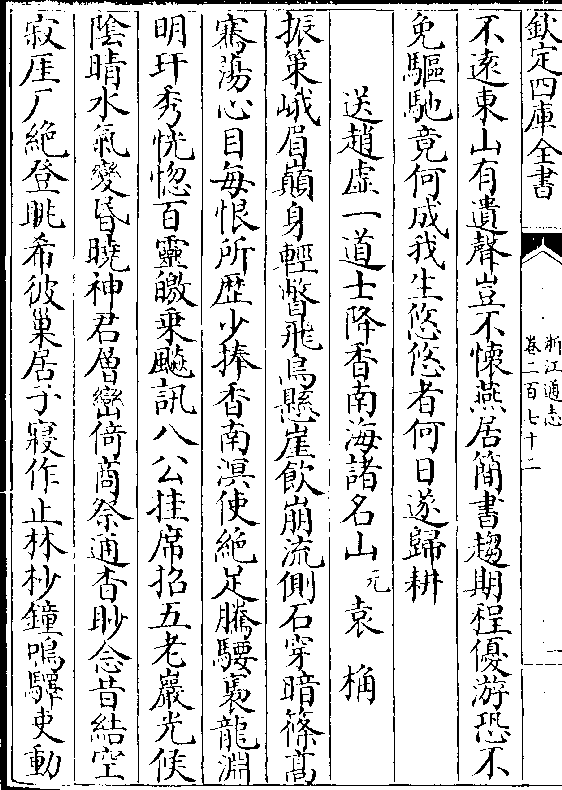 欽定四庫全書
浙江通志
卷二百七十二
不遠東山有遺聲豈不懷燕居簡書趨期程優游恐不
免驅馳竟何成我生悠悠者何日遂歸耕
送趙虚一道士降香南海諸名山元袁桷
振策峨眉巔身輕瞥飛鳥懸崖飲崩流側石穿暗篠高
騫蕩心目毎恨所歴少捧香南溟使絶足騰騕褭龍淵
明玕秀恍惚百靈曒乗飈訊八公挂席招五老巖光倐
陰晴水氣變昏曉神君層巒倚啇祭通杳眇念昔結空
寂厓厂絶登眺希彼巢居子寢作止林杪鐘鳴驛吏動